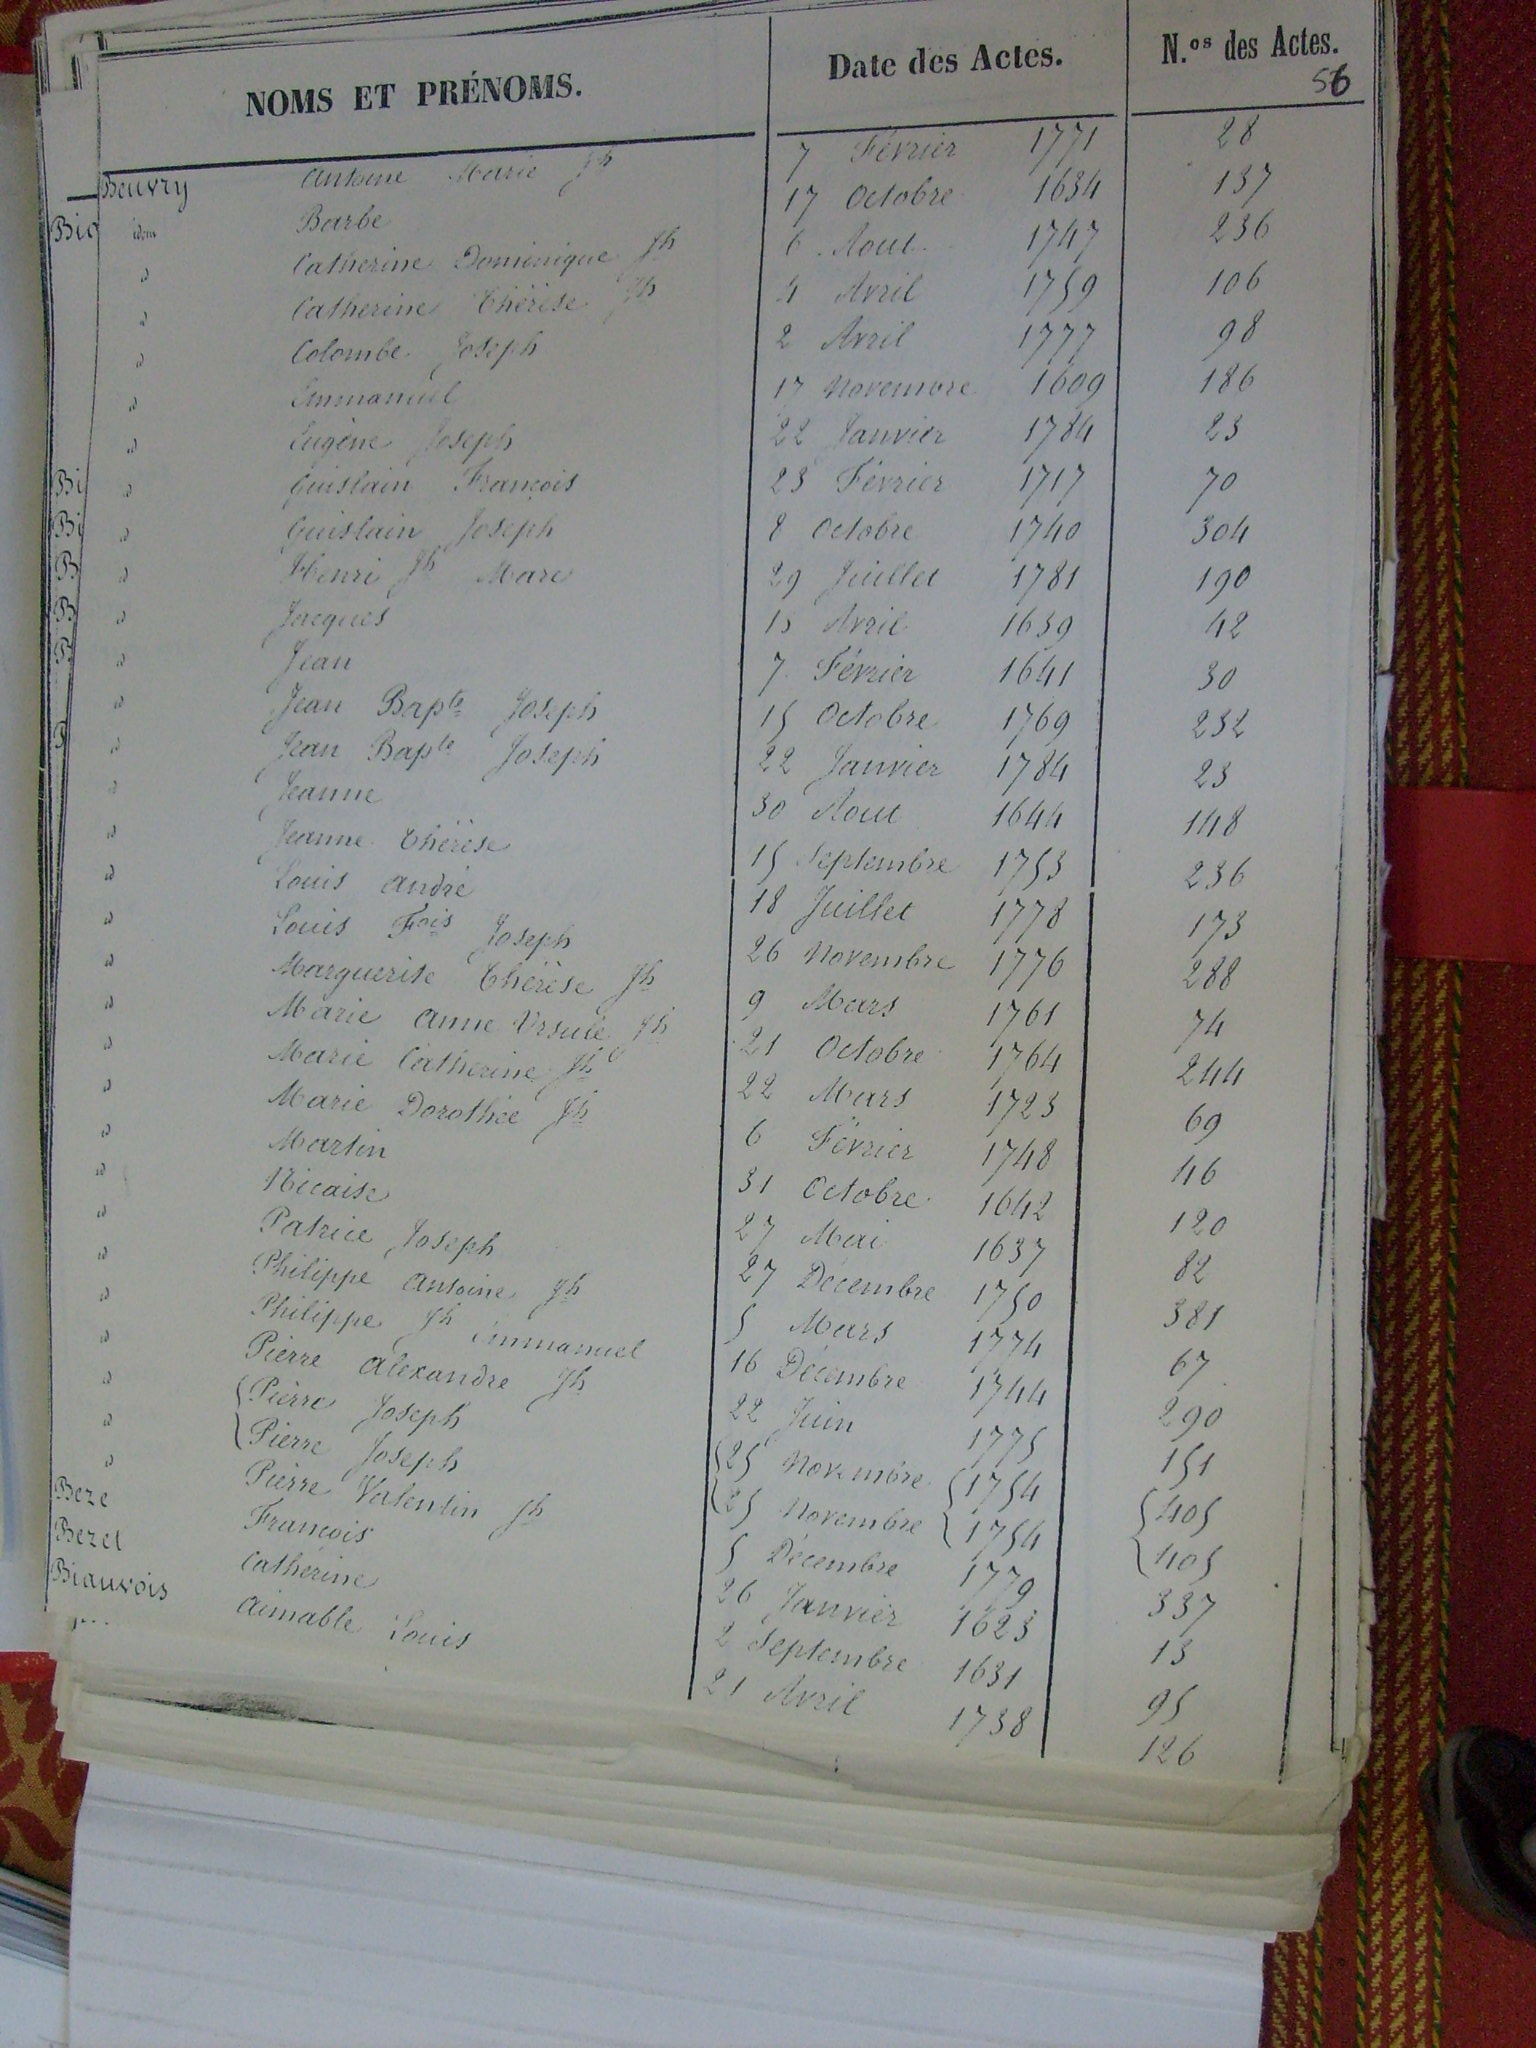 NOMS ET PRÉNOMS. Date des Actes. N.os des Actes.
56
Beuvry Antoine Marie Jh 7 Février 1771 28
Bio idem Barbe 17 Octobre 1634 137
" Catherine Dominique Jh 6 Aout 1747 236
" Catherine Thérèse Jh 4 Avril 1759 106
" Colombe Joseph 2 Avril 1777 98
" Emmanuel 17 Novembre 1609 186
" Eugène Joseph 22 Janvier 1784 23
Bi " Guislain François 23 Février 1717 70
Bi " Guislain Joseph 8 Octobre 1740 304
B " Henri Jh Marc 29 Juillet 1781 190
B " Jacques 15 Avril 1639 42
B " Jean 7 Février 1641 30
" Jean Bapte Joseph 15 Octobre 1769 232
" Jean Bapte Joseph 22 Janvier 1784 23
" Jeanne 30 Aout 1644 148
" Jeanne Thérèse 15 Septembre 1753 236
" Louis André 18 Juillet 1778 173
" Louis Fois Joseph 26 Novembre 1776 288
" Marguerite Thérèse Jh 9 Mars 1761 74
" Marie Anne Ursule Jh 21 Octobre 1764 244
" Marie Catherine Jh 22 Mars 1723 69
" Marie Dorothée Jh 6 Février 1748 46
" Martin 31 Octobre 1642 120
" Nicaise 27 Mai 1637 82
" Patrice Joseph 27 Décembre 1750 381
" Philippe Antoine Jh 5 Mars 1774 67
" Philippe Jh Emmanuel 16 Décembre 1744 290
" Pierre Alexandre Jh 22 Juin 1775 151
" { Pierre Joseph { 25 Novembre { 1754 { 405
" { Pierre Joseph { 25 Novembre { 1754 { 405
" Pierre Valentin Jh 5 Décembre 1779 337
Beze François 26 Janvier 1623 13
Bezet Catherine 2 Septembre 1631 95
Biauvois Aimable Louis 21 Avril 1738 126